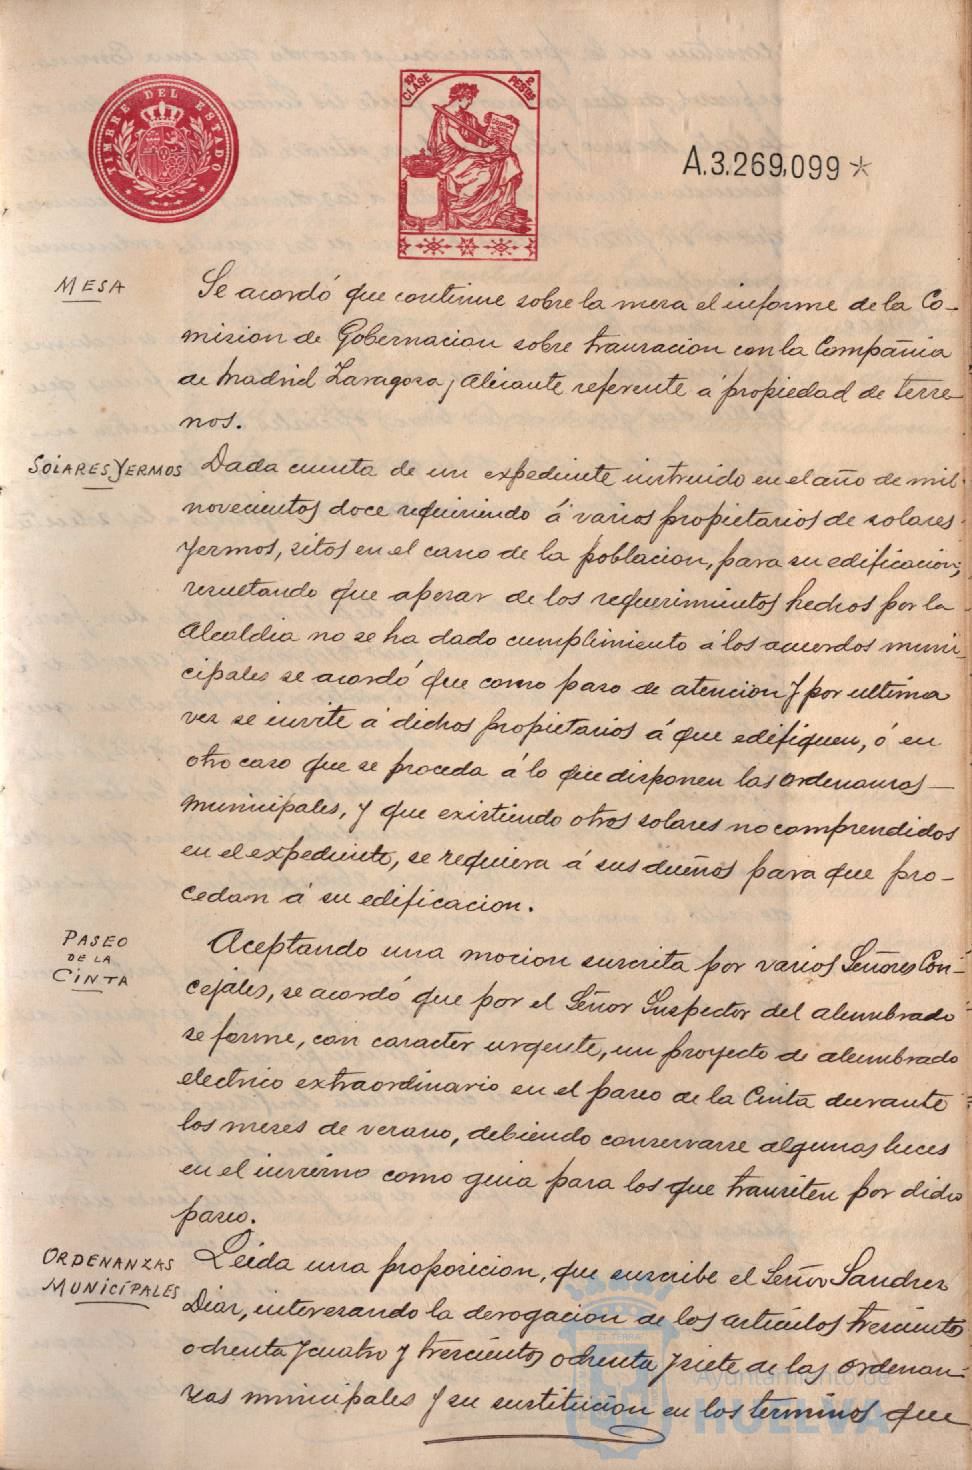 TIMBRE DEL ESTADO
10ª CLASE
2 PESETAS
A.3.269,099 *
MESA
Se acordó que continue sobre la mesa el informe de la Co-
mision de Gobernacion sobre transacion con la Compañia
de Madrid Zaragoza y Alicante referente á propiedad de terre
nos.
SOLARES YERMOS
Dada cuenta de un expediente instruido en el año de mil
novecientos doce requiriendo á varios propietarios de solares
yermos, sitos en el casco de la poblacion, para su edificacion;
resultando que apesar de los requerimientos hechos por la
Alcaldia no se ha dado cumplimiento á los acuerdos muni-
cipales se acordó que como paso de atencion y por ultima
vez se invite á dichos propietarios á que edifiquen, ó en
otro caso que se proceda á lo que disponen las ordenanzas—
municipales, y que existiendo otros solares no comprendidos
en el expediente, se requiera á sus dueños para que pro-
cedan á su edificacion.
PASEO
DE LA
CINTA
Aceptando una mocion suscrita por varios Señores Con-
cejales, se acordó que por el Señor Inspector del alumbrado
se forme, con caracter urgente, un proyecto de alumbrado
electrico extraordinario en el paseo de la Cinta durante
los meses de verano, debiendo conservarse algunas luces
en el invierno como guia para los que transiten por dicho
paseo.
ORDENANZAS
MUNICÍPALES
Leida una proposicion, que suscribe el Señor Sanchez
Diaz, interesando la derogacion de los articulos trescientos
ochenta y cuatro y trescientos ochenta y siete de las ordenan-
zas municipales y su sustitución en los terminos que
ET TERRA
Ayuntamiento de
HUELVA